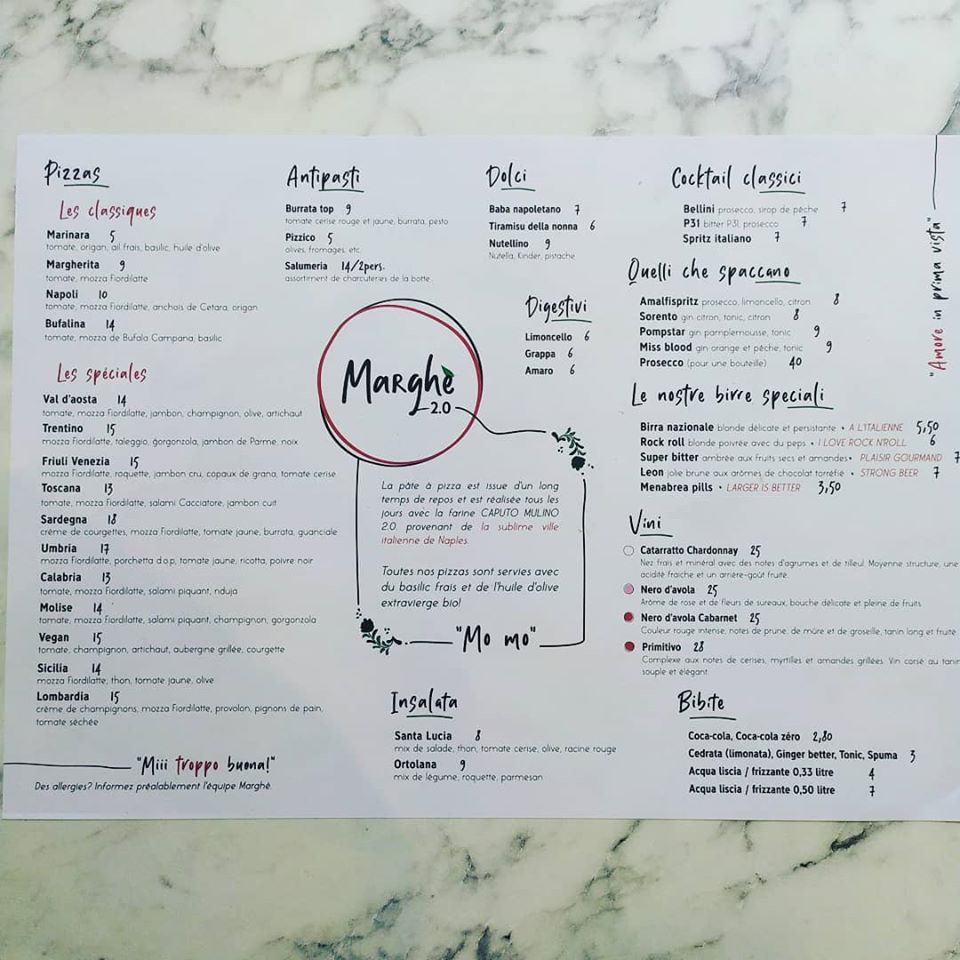 Pizzas
Les classiques
Marinara 5
tomate, origan, ail frais, basilic, huile d'olive
Margherita 9
tomate, mozza Fiordilatte
Napoli 10
tomate, mozza Fiordilatte, anchois de Cetara, origan
Bufalina 14
tomate, mozza de Bufala Campana, basilic
Les spéciales
Val d'aosta 14
tomate, mozza Fiordilatte, jambon, champignon, olive, artichaut
Trentino 15
mozza Fiordilatte, taleggio, gorgonzola, jambon de Parme, noix
Friuli Venezia 15
mozza Fiordilatte, roquette, jambon cru, copaux de grana, tomate cerise
Toscana 13
tomate, mozza Fiordilatte, salami Cacciatore, jambon cuit
Sardegna 18
crème de courgettes, mozza Fiordilatte, tomate jaune, burrata, guanciale
Umbria 17
mozza Fiordilatte, porchetta d.o.p, tomate jaune, ricotta, poivre noir
Calabria 13
tomate, mozza Fiordilatte, salami piquant, nduja
Molise 14
tomate, mozza Fiordilatte, salami piquant, champignon, gorgonzola
Vegan 15
tomate, champignon, artichaut, aubergine grillée, courgette
Sicilia 14
mozza Fiordilatte, thon, tomate jaune, olive
Lombardia 15
crème de champignons, mozza Fiordilatte, provolon, pignons de pain,
tomate séchée
"Miii troppo buona!"
Des allergies? Informez préalablement l'équipe Marghé.
Antipasti
Burrata top 9
tomate cerise rouge et jaune, burrata, pesto
Pizzico 5
olives, fromages, etc.
Salumeria 14/2pers.
assortiment de charcuteries de la botte
Dolci
Baba napoletano 7
Tiramisu della nonna 6
Nutellino 9
Nutella, Kinder, pistache
Digestivi
Limoncello 6
Grappa 6
Amaro 6
Marghè
2.0
La pâte à pizza est issue d'un long
temps de repos et est réalisée tous les
jours avec la farine CAPUTO MULINO
2.0 provenant de la sublime ville
italienne de Naples.
Toutes nos pizzas sont servies avec
du basilic frais et de l'huile d'olive
extravierge bio!
"Mo mo"
Insalata
Santa Lucia 8
mix de salade, thon, tomate cerise, olive, racine rouge
Ortolana 9
mix de légume, roquette, parmesan
Cocktail classici
Bellini prosecco, sirop de pêche 7
P31 bitter P31, prosecco 7
Spritz italiano 7
Quelli che spaccano
Amalfispritz prosecco, limoncello, citron 8
Sorento gin citron, tonic, citron 8
Pompstar gin pamplemousse, tonic 9
Miss blood gin orange et pêche, tonic 9
Prosecco (pour une bouteille) 40
Le nostre birre speciali
Birra nazionale blonde délicate et persistante • A L'ITALIENNE 5,50
Rock roll blonde poivrée avec du peps • I LOVE ROCK N'ROLL 6
Super bitter ambrée aux fruits secs et amandes • PLAISIR GOURMAND 7
Leon jolie brune aux arômes de chocolat torréfié • STRONG BEER 7
Menabrea pills • LARGER IS BETTER 3,50
Vini
Catarratto Chardonnay 25
Nez frais et minéral avec des notes d'agrumes et de tilleul. Moyenne structure, une
acidité fraîche et un arrière-goût fruité.
Nero d'avola 25
Arôme de rose et de fleurs de sureaux, bouche délicate et pleine de fruits
Nero d'avola Cabarnet 25
Couleur rouge intense, notes de prune, de mûre et de groseille, tanin long et fruité
Primitivo 28
Complexe aux notes de cerises, myrtilles et amandes grillées. Vin corsé au tanin
souple et élégant.
Bibite
Coca-cola, Coca-cola zéro 2,80
Cedrata (limonata), Ginger better, Tonic, Spuma 3
Acqua liscia / frizzante 0,33 litre 4
Acqua liscia / frizzante 0,50 litre 7
"Amore in prima vista"